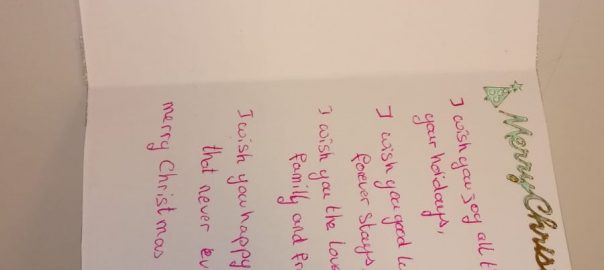 Merry Chris
I wish you joy all
your holidays,
I wish you good
forever stays,
I wish you the love
family and
I wish you happy
that never
merry Christmas